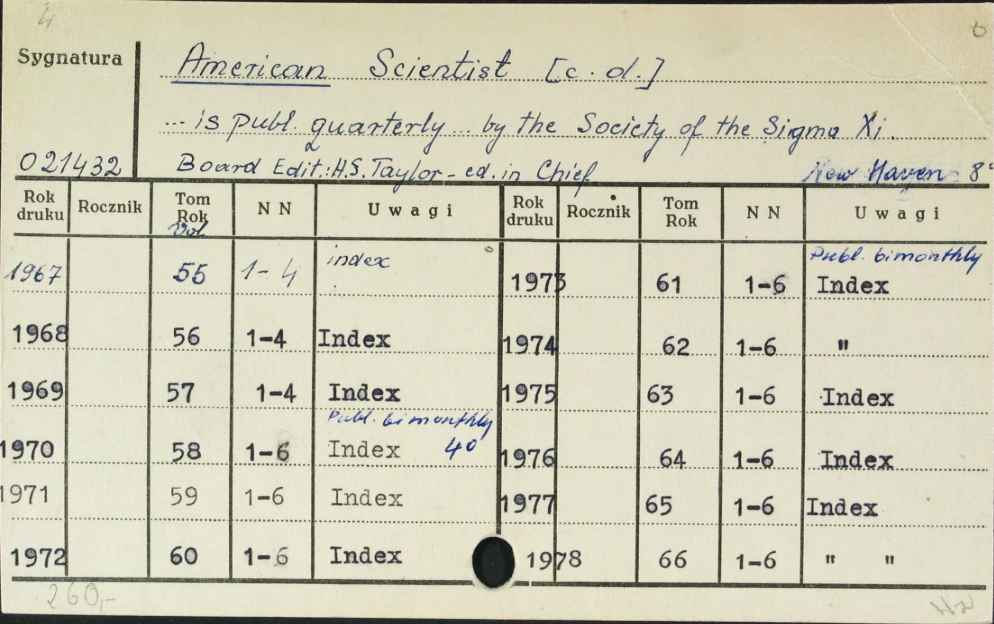 4
Sygnatura American Scientist [c. d.]
... is publ. quarterly ... by the Society of the Sigma Xi.
021432 Board Edit.: H.S. Taylor - ed. in Chief New Haven 8°
Rok druku Rocznik Tom Rok Vol. NN Uwagi Rok druku Rocznik Tom Rok NN Uwagi
1967 55 1-4 index
1968 56 1-4 Index
1969 57 1-4 Index
1970 58 1-6 Publ. bimonthly Index 40
1971 59 1-6 Index
1972 60 1-6 Index
1973 61 1-6 Publ. bimonthly Index
1974 62 1-6 "
1975 63 1-6 Index
1976 64 1-6 Index
1977 65 1-6 Index
1978 66 1-6 " "
260,-